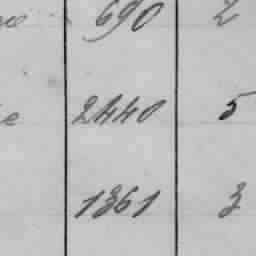 690 2
2440 5
1361 3